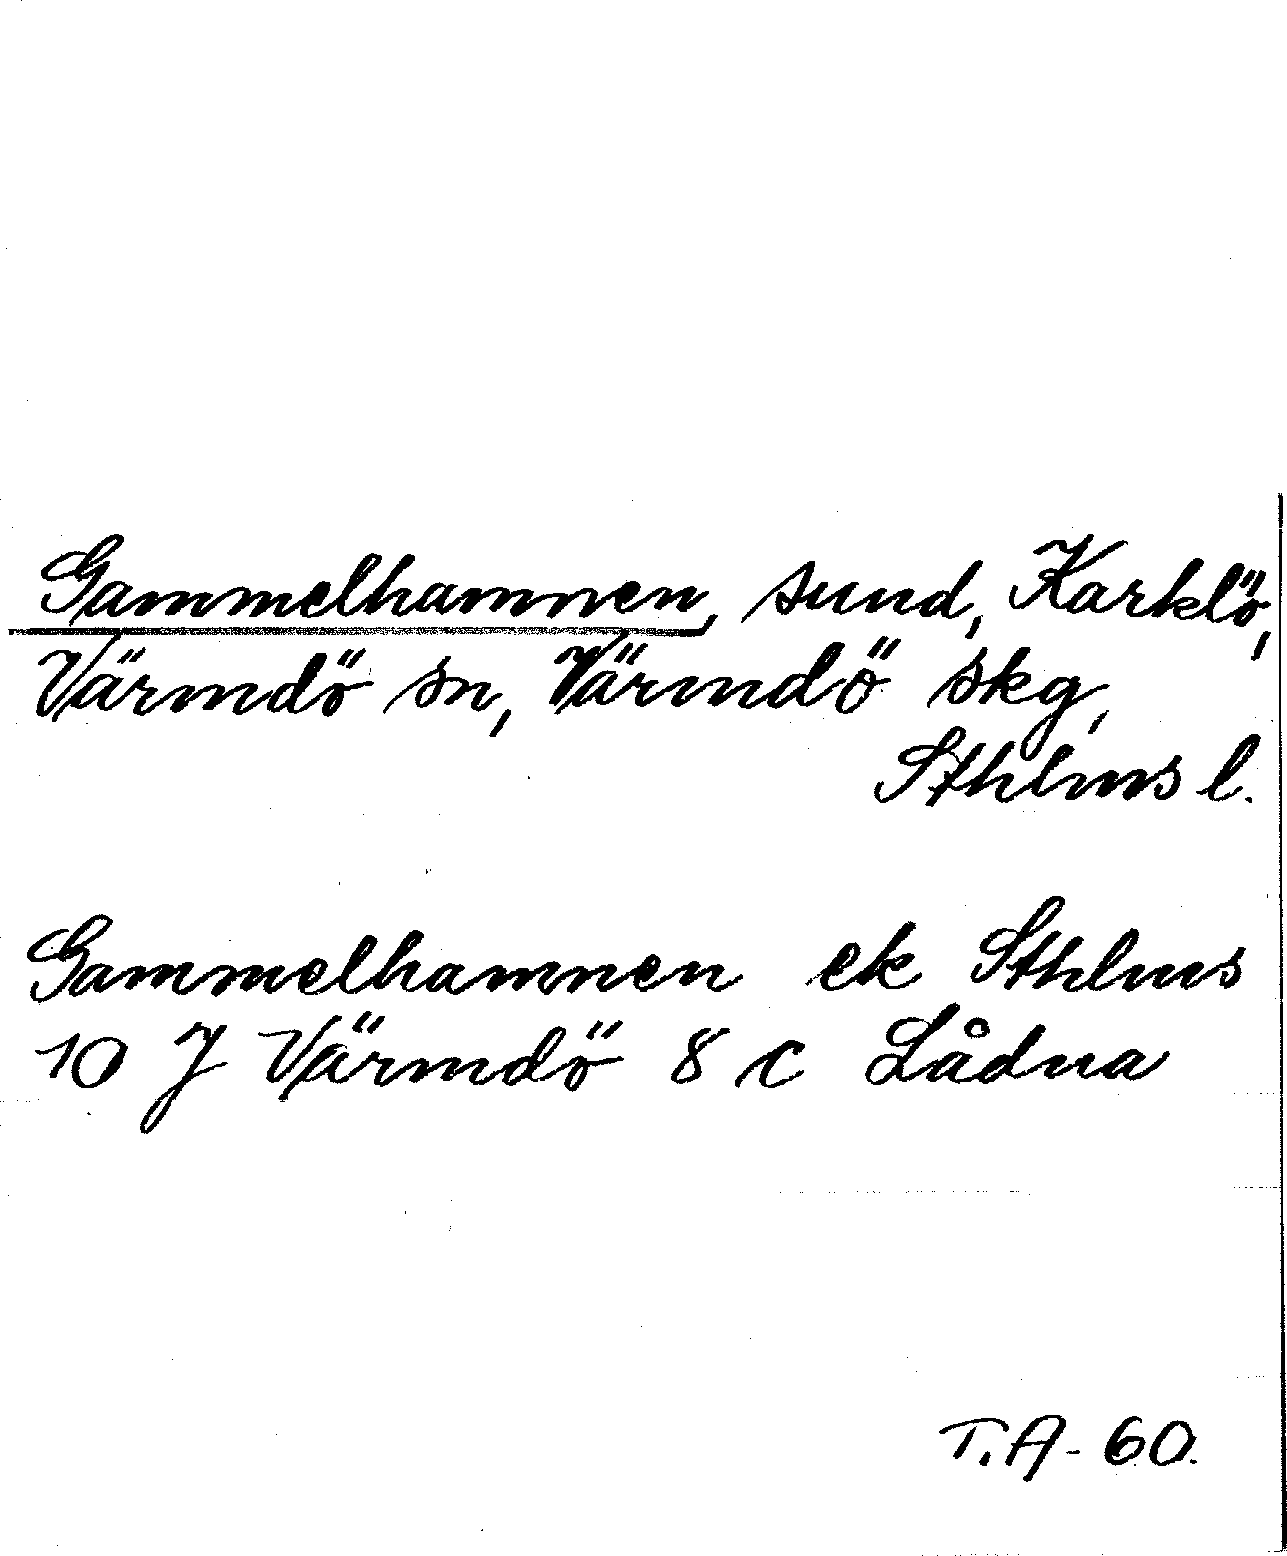 Gammelhamnen, sund, Karklö,
Värmdö sn, Värmdö skg,
Sthlms l.
Gammelhamnen ek Sthlms
10 J Värmdö 8 c Lådna
T.A-60.